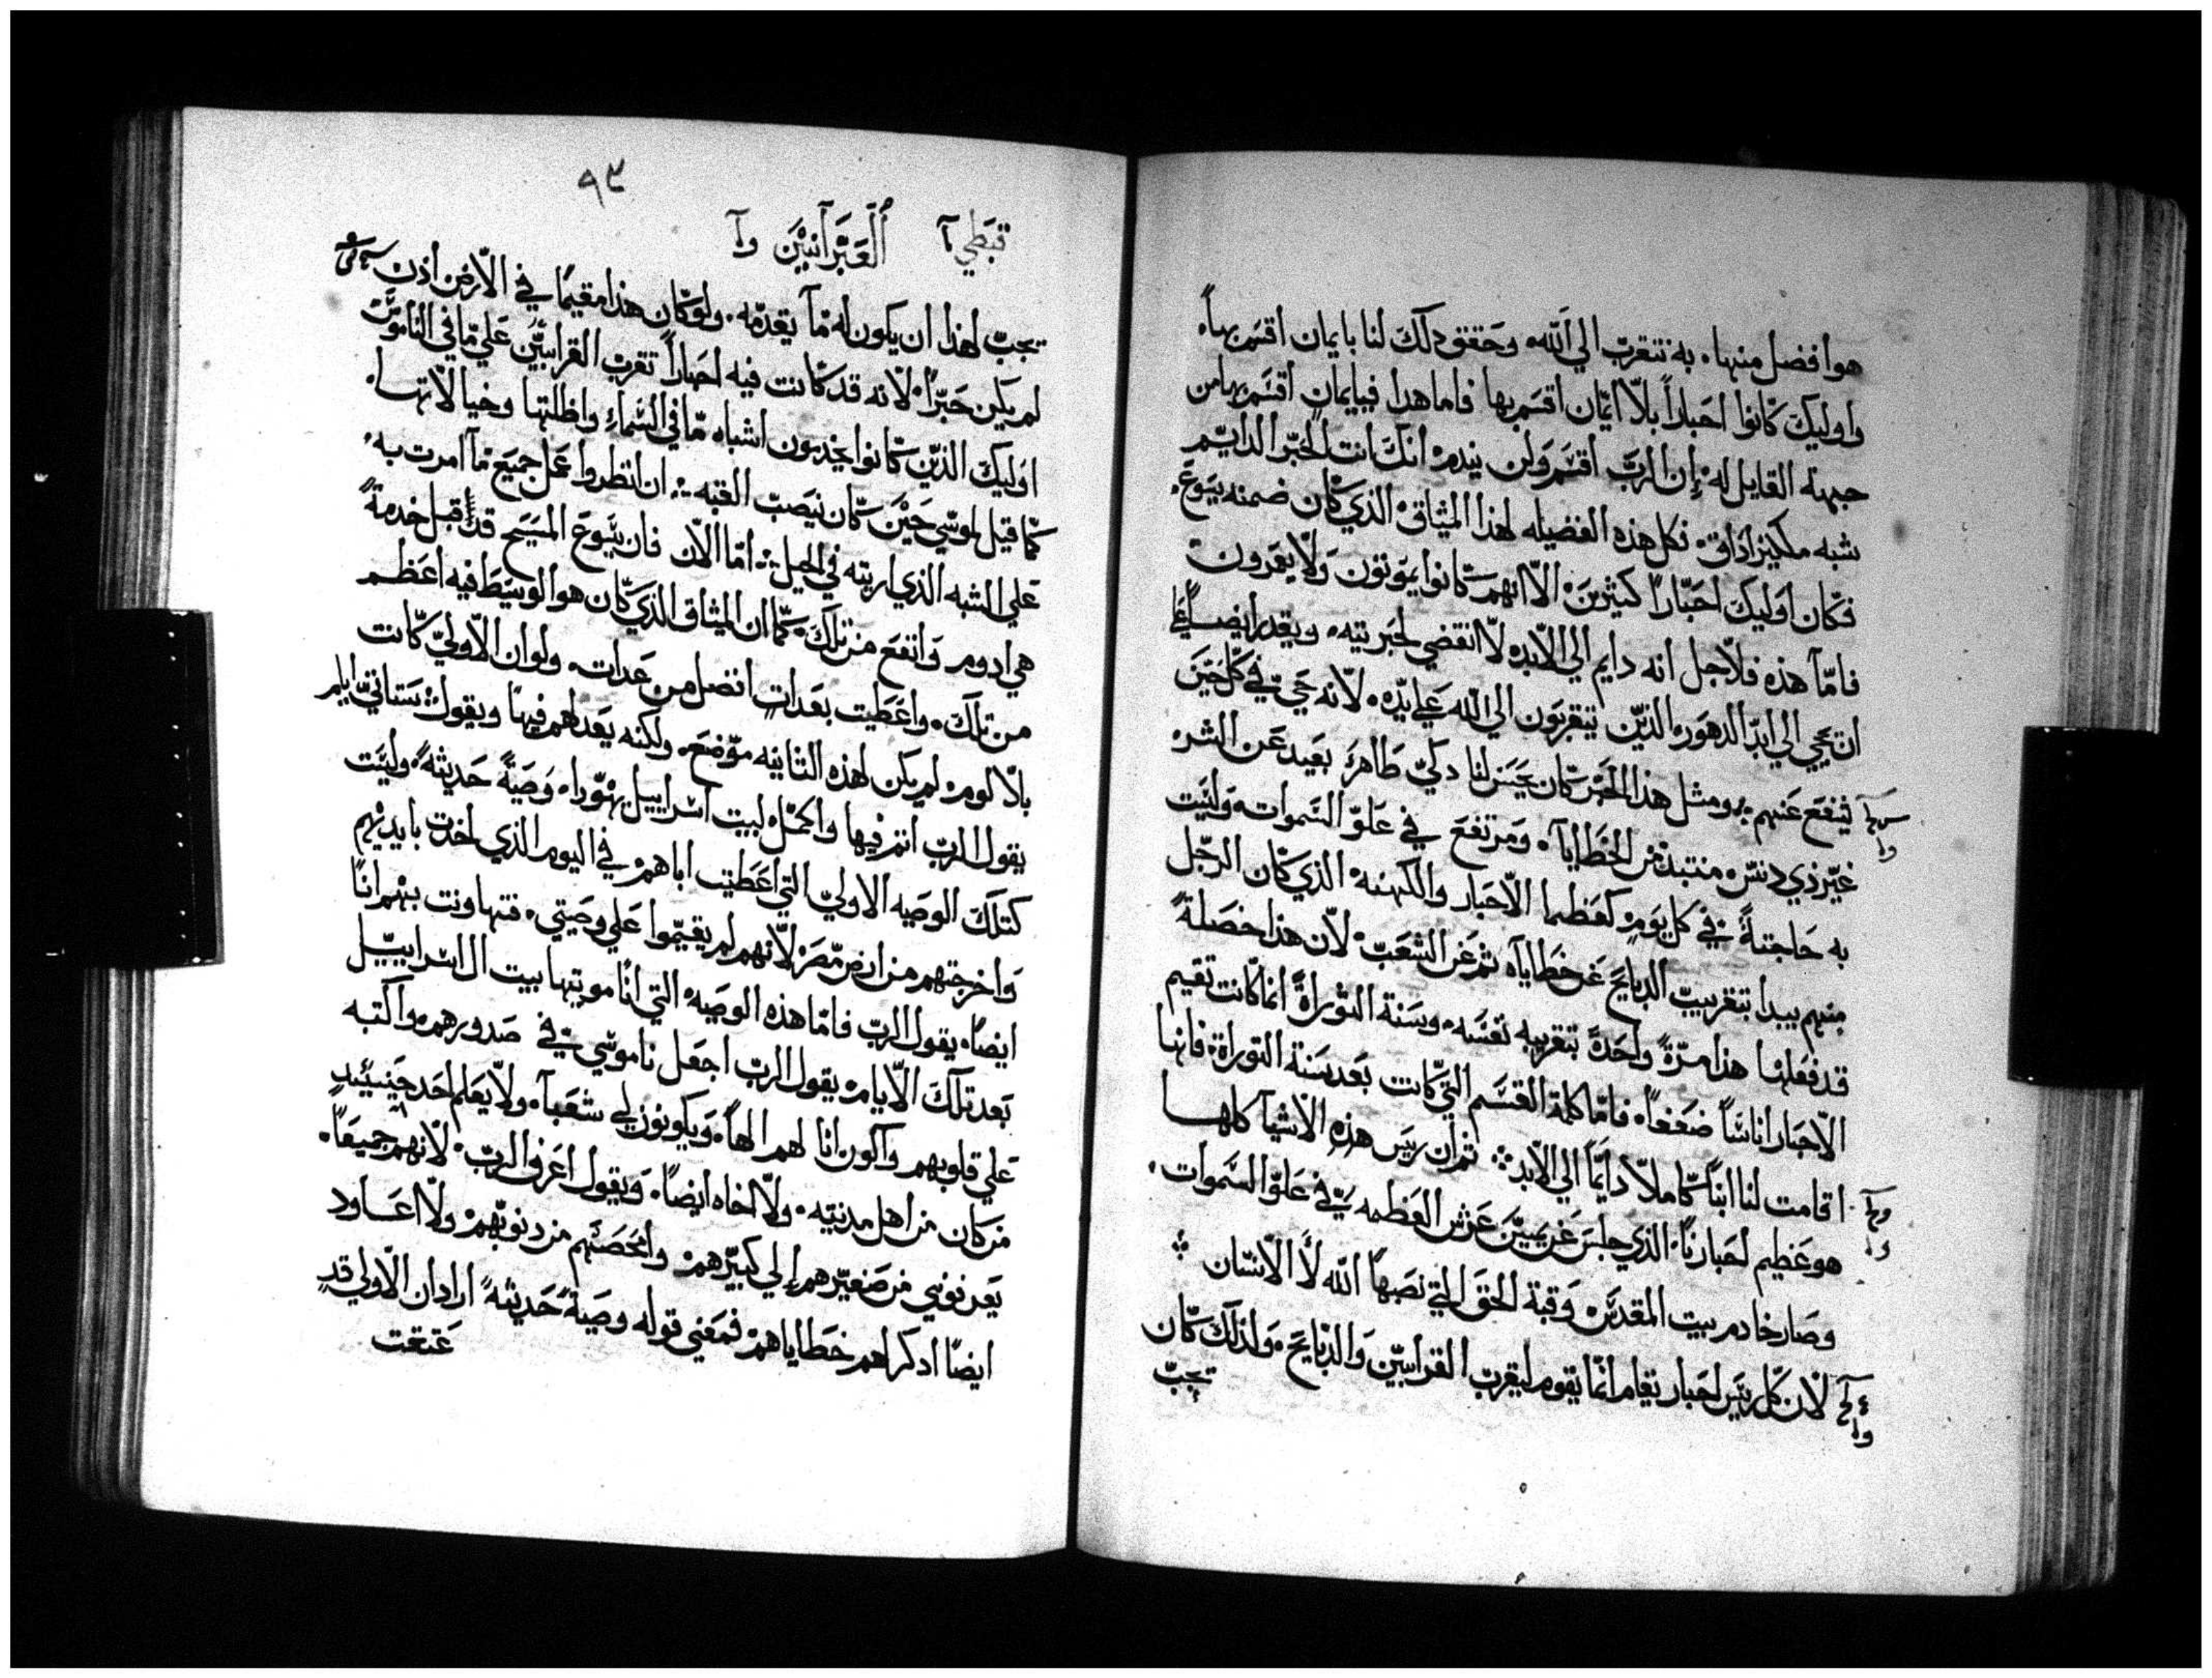 هو افضل منها. به نتقرب الي الله. وحقق دلك لنا بايمان اقسم بها.
واوليك كانوا احباراً بلا ايمان اقسم بها فاما هدا فبايمان اقسم بها من
جهة القايل له إن الرب أقسم ولن يندم انك انت الحبر الدايم
شبه ملكيزاداق. فكل هذه الفضيله لهذا الميثاق الذي كان ضمنه يسوع.
فكان اوليك احباراً كثيرين الا انهم كانوا يموتون ولا يقرون
فامّا هذه فلاجل انه دايم الي الابد. لا انقضي لحبريته. ويقدر ايضاً علي
ان يحيي الي ابد الدهور. الذين يتقربون الي الله علي يده. لانه حي في كل حين
فيفع عنهم ومثل هذا الحبر كان يحسن لنا دكي طاهر بعيد عن الشر
غير ذي دنس. منتبد من الخطايا. ومرتفع في علو السموات. وليت
به حاجة في كل يوم كعظما الاحبار والكهنه. الذي كان الرجل
منهم يبدأ بتقريب الدبايح عن خطاياه ثم عن الشعب. لان هذا خصلة
قد فعلها هذا مرّةً واحدةً بتقريبه نفسه. وسنة التوراة انما كانت تقيم
الاحبار اناساً ضعفا. فامّا كلمة القسم التي كانت بعد سنة التوراة. فانها
اقامت لنا ابناً كاملا دايماً الي الابد ثم ان ريس هذه الاشيا كلها
هو عظيم احبارنا. الذي جلس عن يمين عرش العظمه في علو السموات.
وصار خادم بيت المقدس. وقبة الحق التي نصبها الله لا الانسان
لان كل ريس احبار يقام انما يقوم ليقرب القرابين والدبايح. ولذلك كان
تجب
٩٣
قبطي آ العبرانيين وآ
يجب لهذا ان يكون له ما يقدمه. ولو كان هذا مقيماً في الارض اذن
لم يكن حبراً. لانه قد كانت فيه احباراً تقرب القرابين علي ما في الناموس
اوليك الذين كانوا يخدمون اشباه ما في السماء واظلتها وخيالاتها.
كما قيل لموسي حين كان ينصب القبه ان انظر واعمل جميع ما امرت به.
علي الشبه الذي اريته في الجبل اما الان فان يسوع المسيح قد قبل خدمةً
هي ادوم وانفع من تلك. كما ان الميثاق الذي كان هو الوسيط فيه اعظم
من تلك. واعطيت بعدات افضل من عدات. ولو ان الاولي كانت
بلا لوم لم يكن لهذه الثانيه موضع. ولكنه يعدلهم فيها ويقول ستاتي ايام
يقول الرب اتم فيها واكمل لبيت اسراييل يهورا. وصيةً حديثةً وليت
كتلك الوصيه الاولي التي اعطيت اباهم في اليوم الذي اخدت بايديهم
واخرجتهم من ارض مصر لانهم لم يقيموا علي وصيتي. فتهاونت بهم انا
ايضاً. يقول الرب فاما هذه الوصيه التي انا موتيها بيت ال اسراييل
بعد تلك الايام يقول الرب اجعل ناموسي في صدورهم واكتبه
علي قلوبهم واكون انا لهم الهاً. ويكونون لي شعبا. ولا يعلم احد حينيد
من كان من اهل مدينته. ولا اخاه ايضاً. ويقول اعرف الرب. لانهم جميعاً.
يعرفوني من صغيرهم إلي كبيرهم وامحصهم من دنوبهم ولا اعاود
ايضاً ادكر لهم خطاياهم فمعني قوله وصيةً حديثةً اراد ان الاولي قد
عتقت